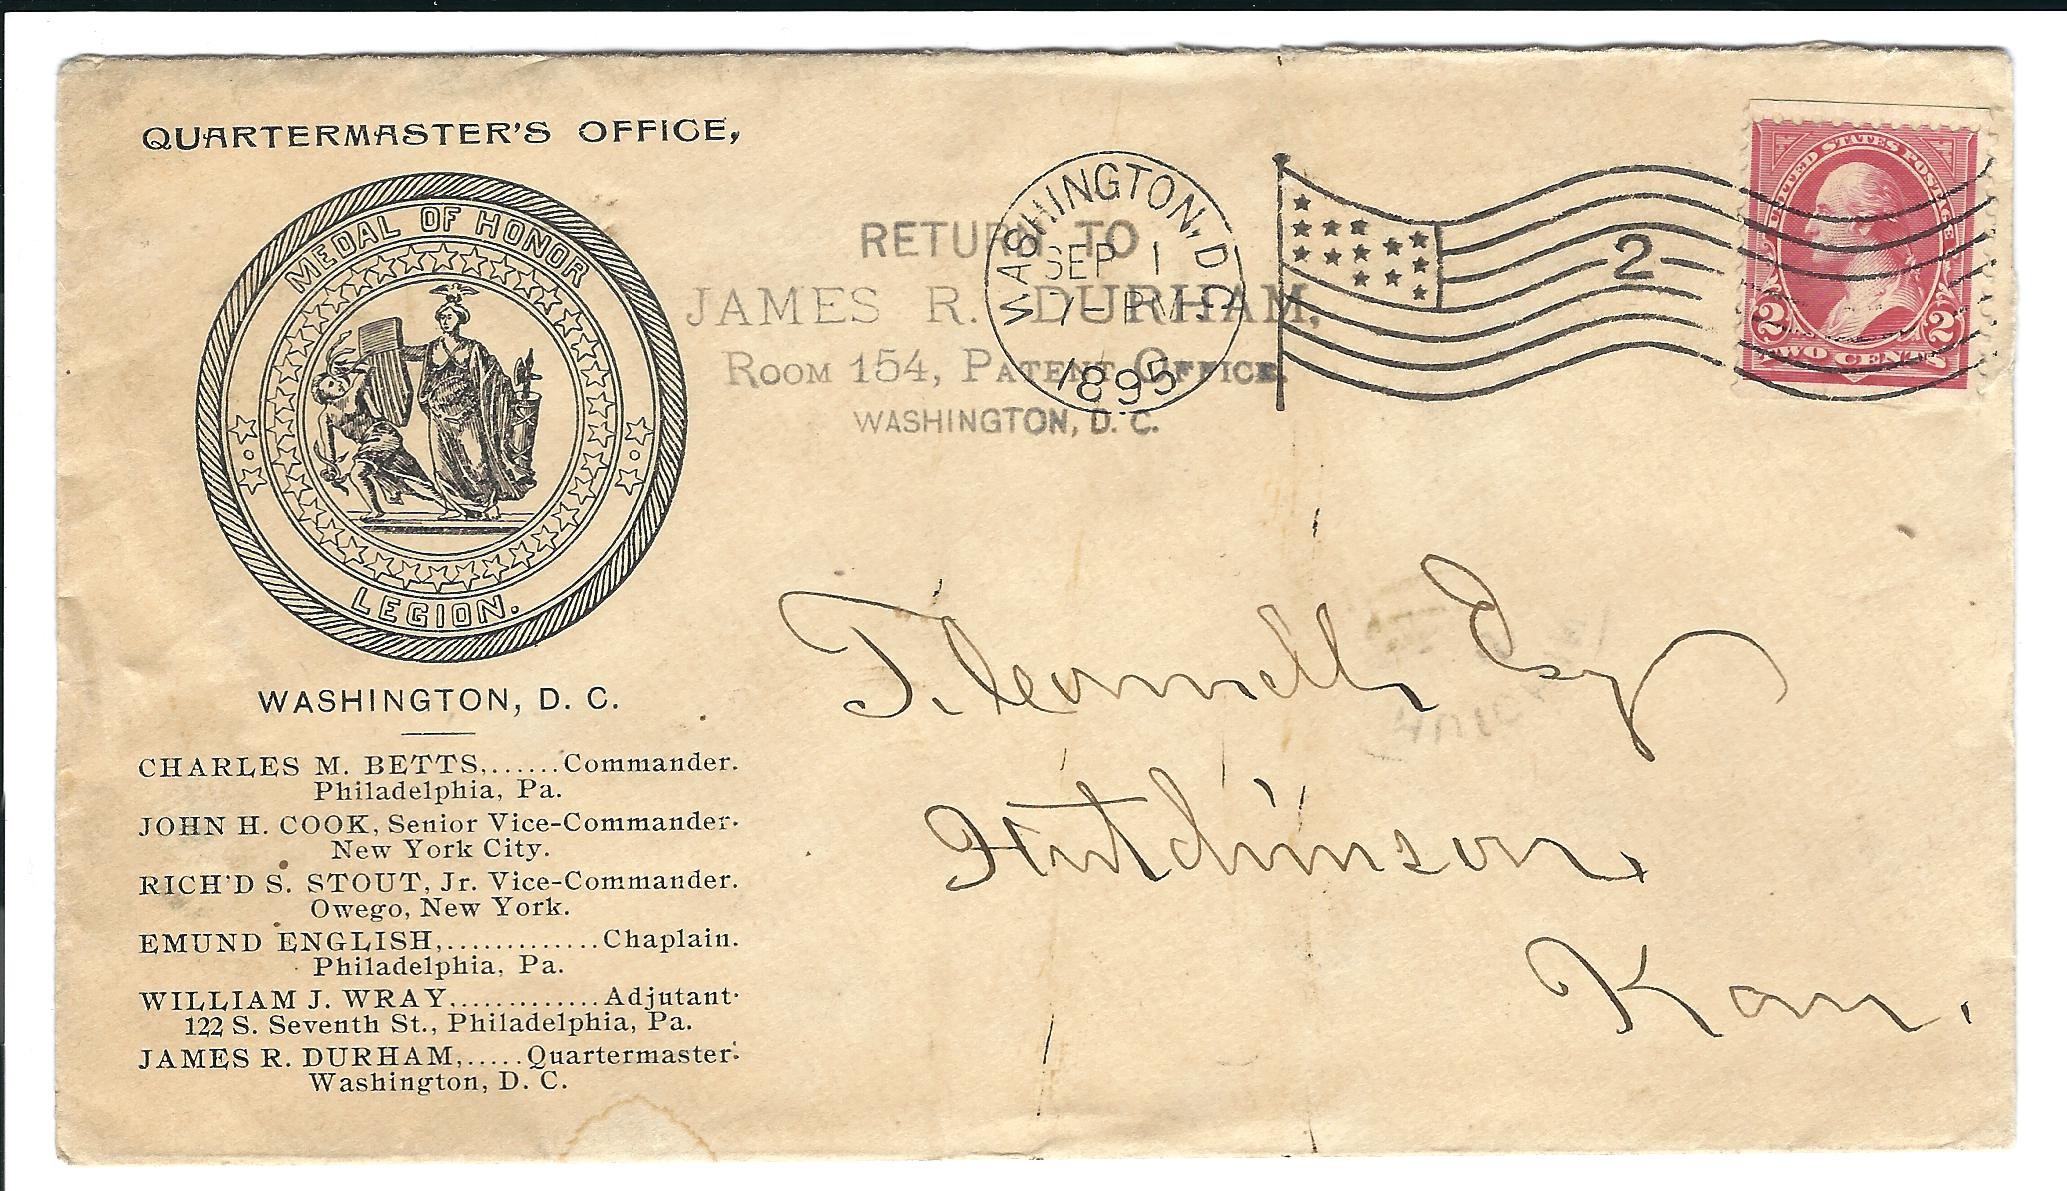 QUARTERMASTER'S OFFICE,
MEDAL OF HONOR
LEGION.
WASHINGTON, D. C.
CHARLES M. BETTS,......Commander.
Philadelphia, Pa.
JOHN H. COOK, Senior Vice-Commander.
New York City.
RICH'D S. STOUT, Jr. Vice-Commander.
Owego, New York.
EMUND ENGLISH,.............Chaplain.
Philadelphia, Pa.
WILLIAM J. WRAY.............Adjutant.
122 S. Seventh St., Philadelphia, Pa.
JAMES R. DURHAM,.....Quartermaster.
Washington, D. C.
RETURN TO
JAMES R. DURHAM,
ROOM 154, PATENT OFFICE,
WASHINGTON, D. C.
WASHINGTON, D.C.
SEP 1
7-PM
1895
2
UNITED STATES POSTAGE
2 2
TWO CENTS
T. Connell Esq
Hutchinson,
Kan.